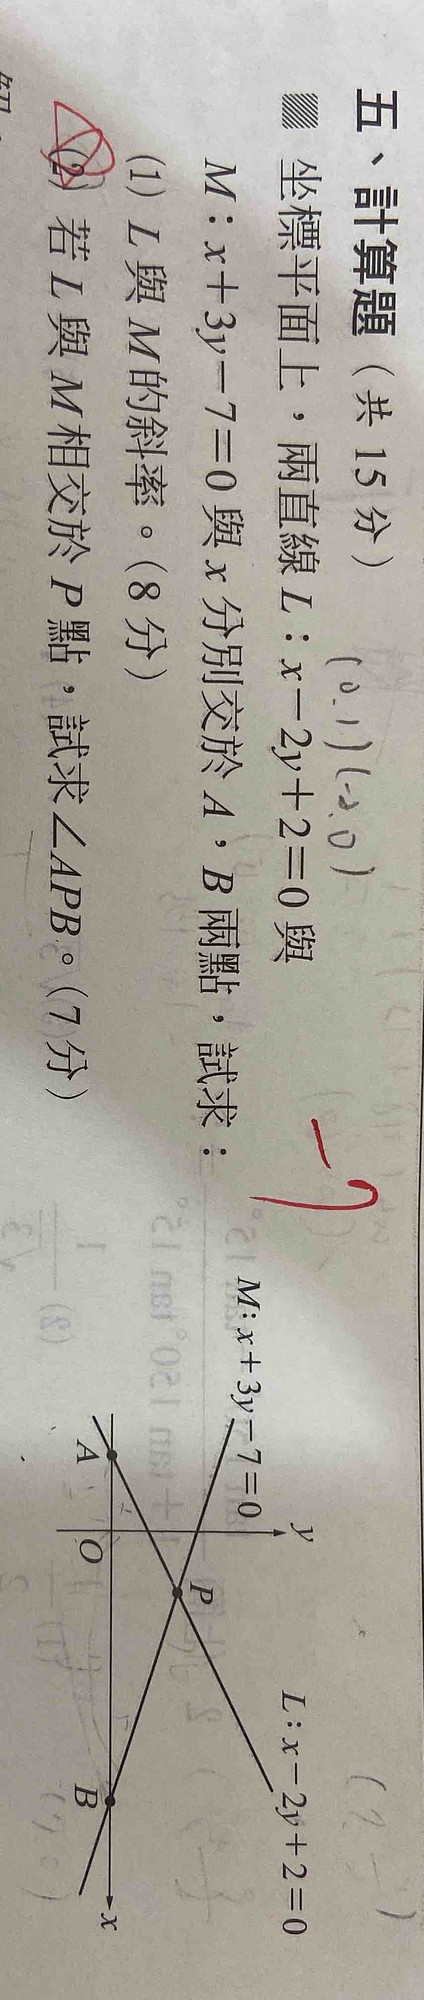 五、計算題（共 15 分）
(0,1) (-2,0)
坐標平面上，兩直線 L：x－2y＋2＝0 與
M：x＋3y－7＝0 與 x 分別交於 A，B 兩點，試求：
(1) L 與 M 的斜率。（8 分）
(2) 若 L 與 M 相交於 P 點，試求∠APB。（7 分）
-7
M:x+3y-7=0
y
L:x-2y+2=0
P
A
O
B
x